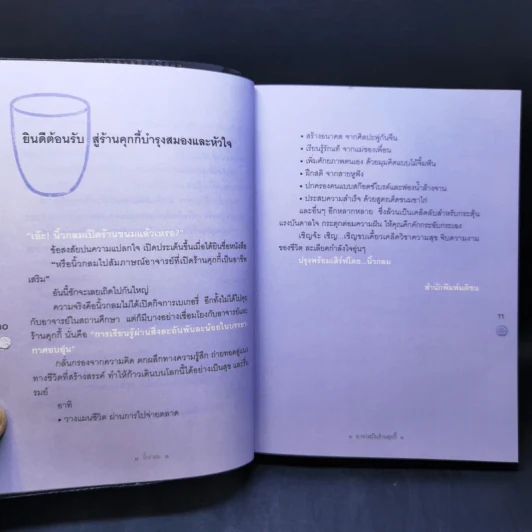 ยินดีต้อนรับ สู่ร้านคุกกี้บำรุงสมองและหัวใจ
"เอ๊ะ! นิ้วกลมเปิดร้านขนมแล้วเหรอ?"
ข้อสงสัยปนความแปลกใจ เปิดประเด็นขึ้นเมื่อได้ยินชื่อหนังสือ
"หรือนิ้วกลมไปสัมภาษณ์อาจารย์ที่เปิดร้านคุกกี้เป็นอาชีพ
เสริม"
อันนี้ชักจะเลยเถิดไปกันใหญ่
ความจริงคือนิ้วกลมไม่ได้เปิดกิจการเบเกอรี่ อีกทั้งไม่ได้ไปคุย
กับอาจารย์ในสถานศึกษา แต่ก็มีบางอย่างเชื่อมโยงกับอาจารย์และ
ร้านคุกกี้ นั่นคือ "การเรียนรู้ผ่านสิ่งละอันพันละน้อยในบรรยา-
กาศอบอุ่น"
กลั่นกรองจากความคิด ตกผลึกทางความรู้สึก ถ่ายทอดสู่
ทางชีวิตที่สร้างสรรค์ ทำให้ก้าวเดินบนโลกนี้ได้อย่างเป็นสุข และ
รมย์
อาทิ
• วางแผนชีวิต ผ่านการไปจ่ายตลาด
10
• สร้างอนาคต จากศิลปะพู่กันจีน
• เรียนรู้รักแท้ จากแม่ของเพื่อน
• เพิ่มศักยภาพตนเอง ด้วยมุมคิดแบบไม้จิ้มฟัน
• ฝึกสติ จากสายหูฟัง
• ปกครองคนแบบสก๊อตช์ไบรต์และฟองน้ำล้างจาน
• ประสบความสำเร็จ ด้วยสูตรเด็ดขนมขาไก่
และอื่นๆ อีกหลากหลาย ซึ่งล้วนเป็นเคล็ดลับสำหรับกระตุ้น
แรงบันดาลใจ กระตุกต่อมความฝัน ให้คุณคึกคักกระฉับกระเฉง
เชิญจ้ะ เชิญ...เชิญขบเคี้ยวเคล็ดวิชาความสุข จิบความงาม
ของชีวิต ละเลียดกำลังใจอุ่นๆ
ปรุงพร้อมเสิร์ฟโดย...นิ้วกลม
สำนักพิมพ์มติชน
11
อาจารย์ในร้านคุกกี้